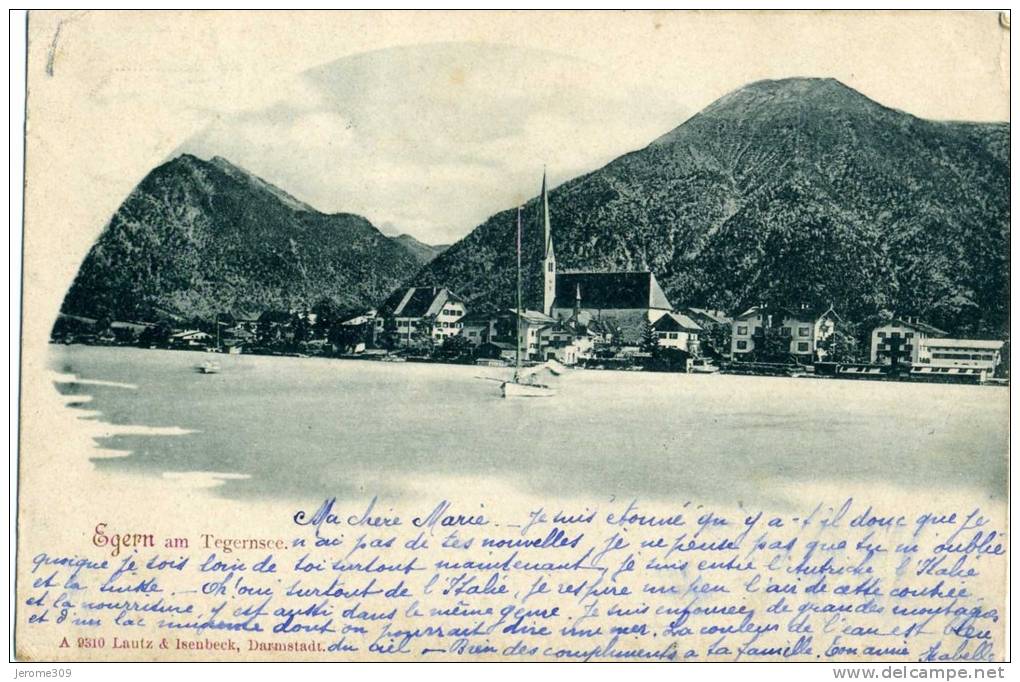 Ma chère Marie. - Je suis étonné qu'y a-t-il donc que je
Egern am Tegernsee. n'ai pas de tes nouvelles, je ne pense pas que tu m'oublie
quoique je sois loin de toi surtout maintenant, je suis entre l'Autriche l'Italie
et la Suisse. - Oh! oui surtout de l'Italie, je respire un peu l'air de cette contrée
et la nourriture y est aussi dans le même genre. Je suis enfoncée de grandes montagnes
et d'un lac dont on pourrait dire une mer. La couleur de l'eau est bleu
A 9310 Lautz & Isenbeck, Darmstadt. du ciel - Bien des compliments a ta famille. Ton amie Isabelle
Uploaded by: jerome309
www.delcampe.net